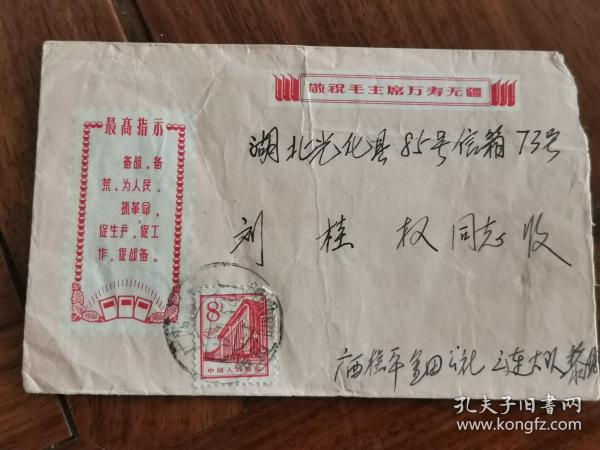 敬祝毛主席万寿无疆
最高指示
备战、备
荒、为人民。
抓革命,
促生产,促工
作,促战备。
湖北光化县85号信箱73号
刘桂权同志收
8
中国人民邮政
广西桂平金田公社
大队
孔夫子旧书网
www.kongfz.com